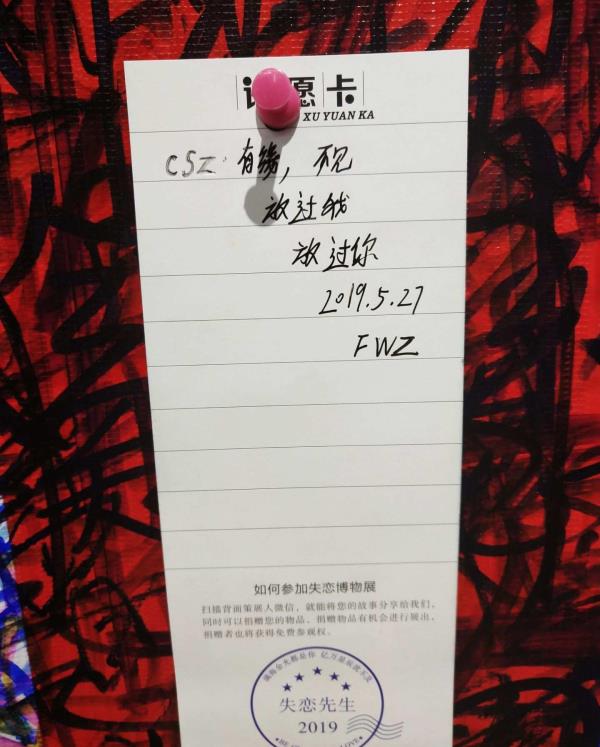 许愿卡
XU YUAN KA
CSZ. 有缘，不见
放过我
放过你
2019.5.27
FWZ
如何参加失恋博物展
扫描背面策展人微信，就能将您的故事分享给我们，
同时可以捐赠您的物品，捐赠物品有机会进行展出，
捐赠者也将获得免费参观权。
失恋先生
2019